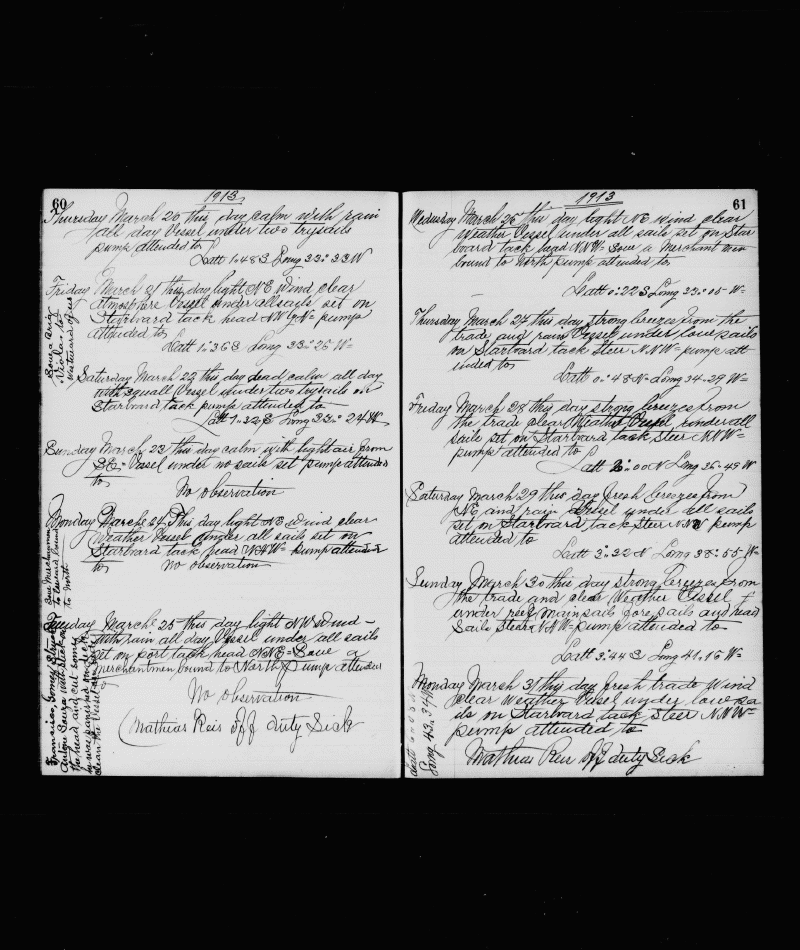 60
1913
Thursday March 20 this day calm with rain
all day Vessel under two trysails
pump attended to
Latt 1.48 S Long 33.33 W
Friday March 21 this day light NE wind clear
atmosphere Vessel under all sails set on
Starbard tack head NW by N pump
attended to
Latt 1.36 S Long 33.26 W
Saturday March 22 this day dead calm all day
with squall Vessel under two trysails on
Starbard tack pump attended to
Latt 1.32 S Long 33.24 W
Sunday March 23 this day calm with light air from
SE Vessel under no sails set pump attended
to
No observation
Monday March 24 This day light NE wind clear
Weather Vessel under all sails set on
Starbard tack head NNW pump attended
to No observation
Tuesday March 25 this day light NW wind
with rain all day Vessel under all sails
set on port tack head NNE Saw a
merchantmen bound to North Pump attended
to
No observation
(Mathias Reis off duty Sick
to North
61
1913
Wednesday March 26 this day light NE wind clear
Weather Vessel under all sails set on Star
board tack head NNW Saw a Merchant men
bound to North pump attended to
Latt 0.22 S Long 33.05 W
Thursday March 27 this day strong breezes from the
trade and rain Vessel under low sails
on Starbard tack Steer NNW pump att
ended to
Latt 0.48 N Long 34.29 W
Friday March 28 this day strong breezes from
the trade clear Weather Vessel under all
sails set on Starbard tack steer NNW
pump attended to
Latt 2.00 N Long 36.49 W
Saturday March 29 this day fresh breezes from
NE and rain Vessel under all sails
set on Starbard tack Steer NNW pump
attended to
Latt 3.32 N Long 38.55 W
Sunday March 30 this day strong breezes from
the trade and clear Weather Vessel
under reef mainsails foresails and head
Sails Steer NNW pump attended to
Latt 3.44 S Long 41.16 W
Monday March 31 this day fresh trade wind
clear Weather Vessel under low sa
ils on Starbard tack Steer NNW
pump attended to
Mathias Reis off duty Sick